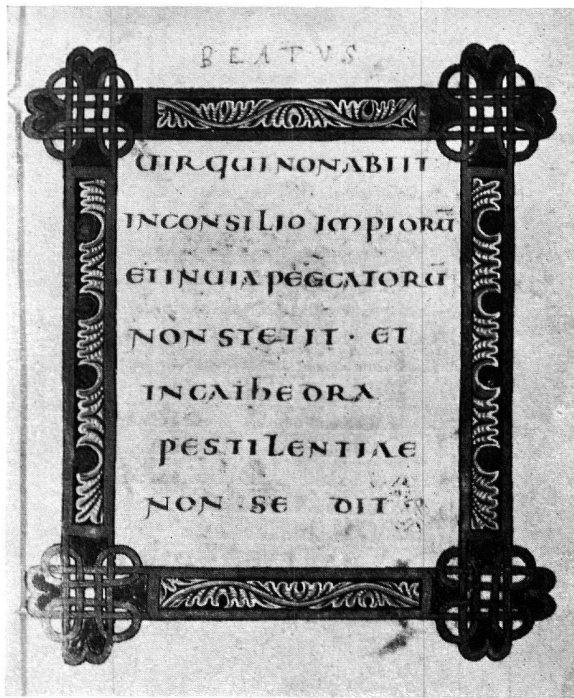 BEATVS
UIR QUI NON ABIIT
IN CONSILIO IMPIORŪ
ET IN UIA PECCATORŪ
NON STETIT · ET
IN CATHEDRA
PESTILENTIAE
NON SEDIT